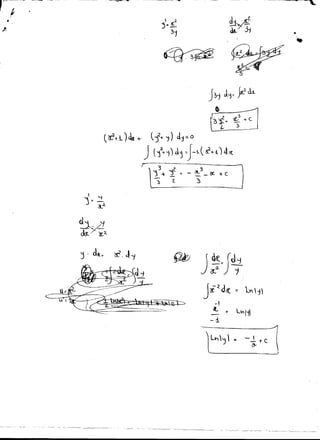 y' = x²/3y
dy/dx = x²/3y
∫3y dy = ∫x² dx
3 y²/2 = x³/3 + c
(x²+1)dx + (y²+y) dy=0
∫(y²+y)dy = ∫-1(x²+1)dx
y³/3 + y²/2 = - x³/3 - x + c
y' = y/x²
dy/dx = y/x²
y · dx = x² · dy
∫dx/x² = ∫dy/y
∫x⁻² dx = Ln|y|
x⁻¹/-1 = Ln|y|
Ln|y| = -1/x + c